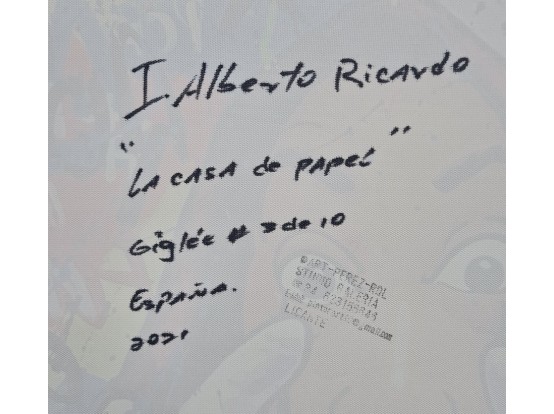 I. Alberto Ricardo
"LA CASA de PAPEL"
Giglée # 3 de 10
ESPAÑA.
2021
ART-PEREZ-ROL
STUDIO GALERIA
LICANTE